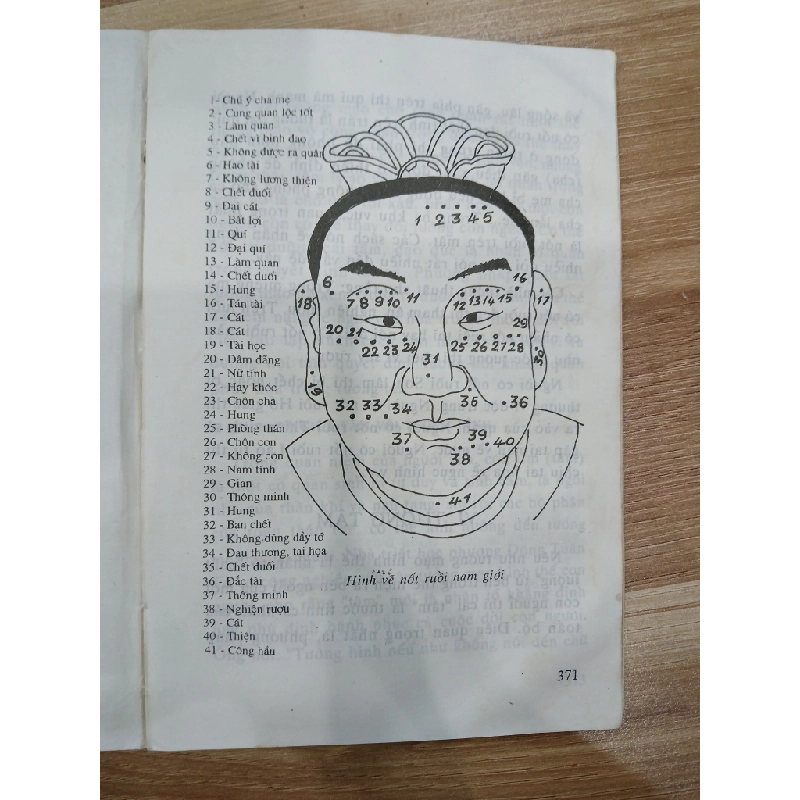 1 - Chủ ý cha mẹ
2 - Cung quan lộc tốt
3 - Làm quan
4 - Chết vì binh đao
5 - Không được ra quân
6 - Hao tài
7 - Không lương thiện
8 - Chết đuối
9 - Đại cát
10 - Bất lợi
11 - Quí
12 - Đại quí
13 - Làm quan
14 - Chết đuối
15 - Hung
16 - Tán tài
17 - Cất
18 - Cất
19 - Tài học
20 - Dâm đãng
21 - Nữ tính
22 - Hay khóc
23 - Chôn cha
24 - Hung
25 - Phòng thân
26 - Chôn con
27 - Không con
28 - Nam tính
29 - Gian
30 - Thông minh
31 - Hung
32 - Ban chết
33 - Không dùng đầy tớ
34 - Đau thương, tai họa
35 - Chết đuối
36 - Đắc tài
37 - Thông minh
38 - Nghiện rượu
39 - Cát
40 - Thiện
41 - Công hầu
1 2 3 4 5
6 16
18 7 8 9 10 11 12 13 14 15 17
20 21 22 23 24 25 26 27 28 29
31 30
19
32 33 34 35 36
37 39 40
38
41
Hình vẽ nốt ruồi nam giới
371